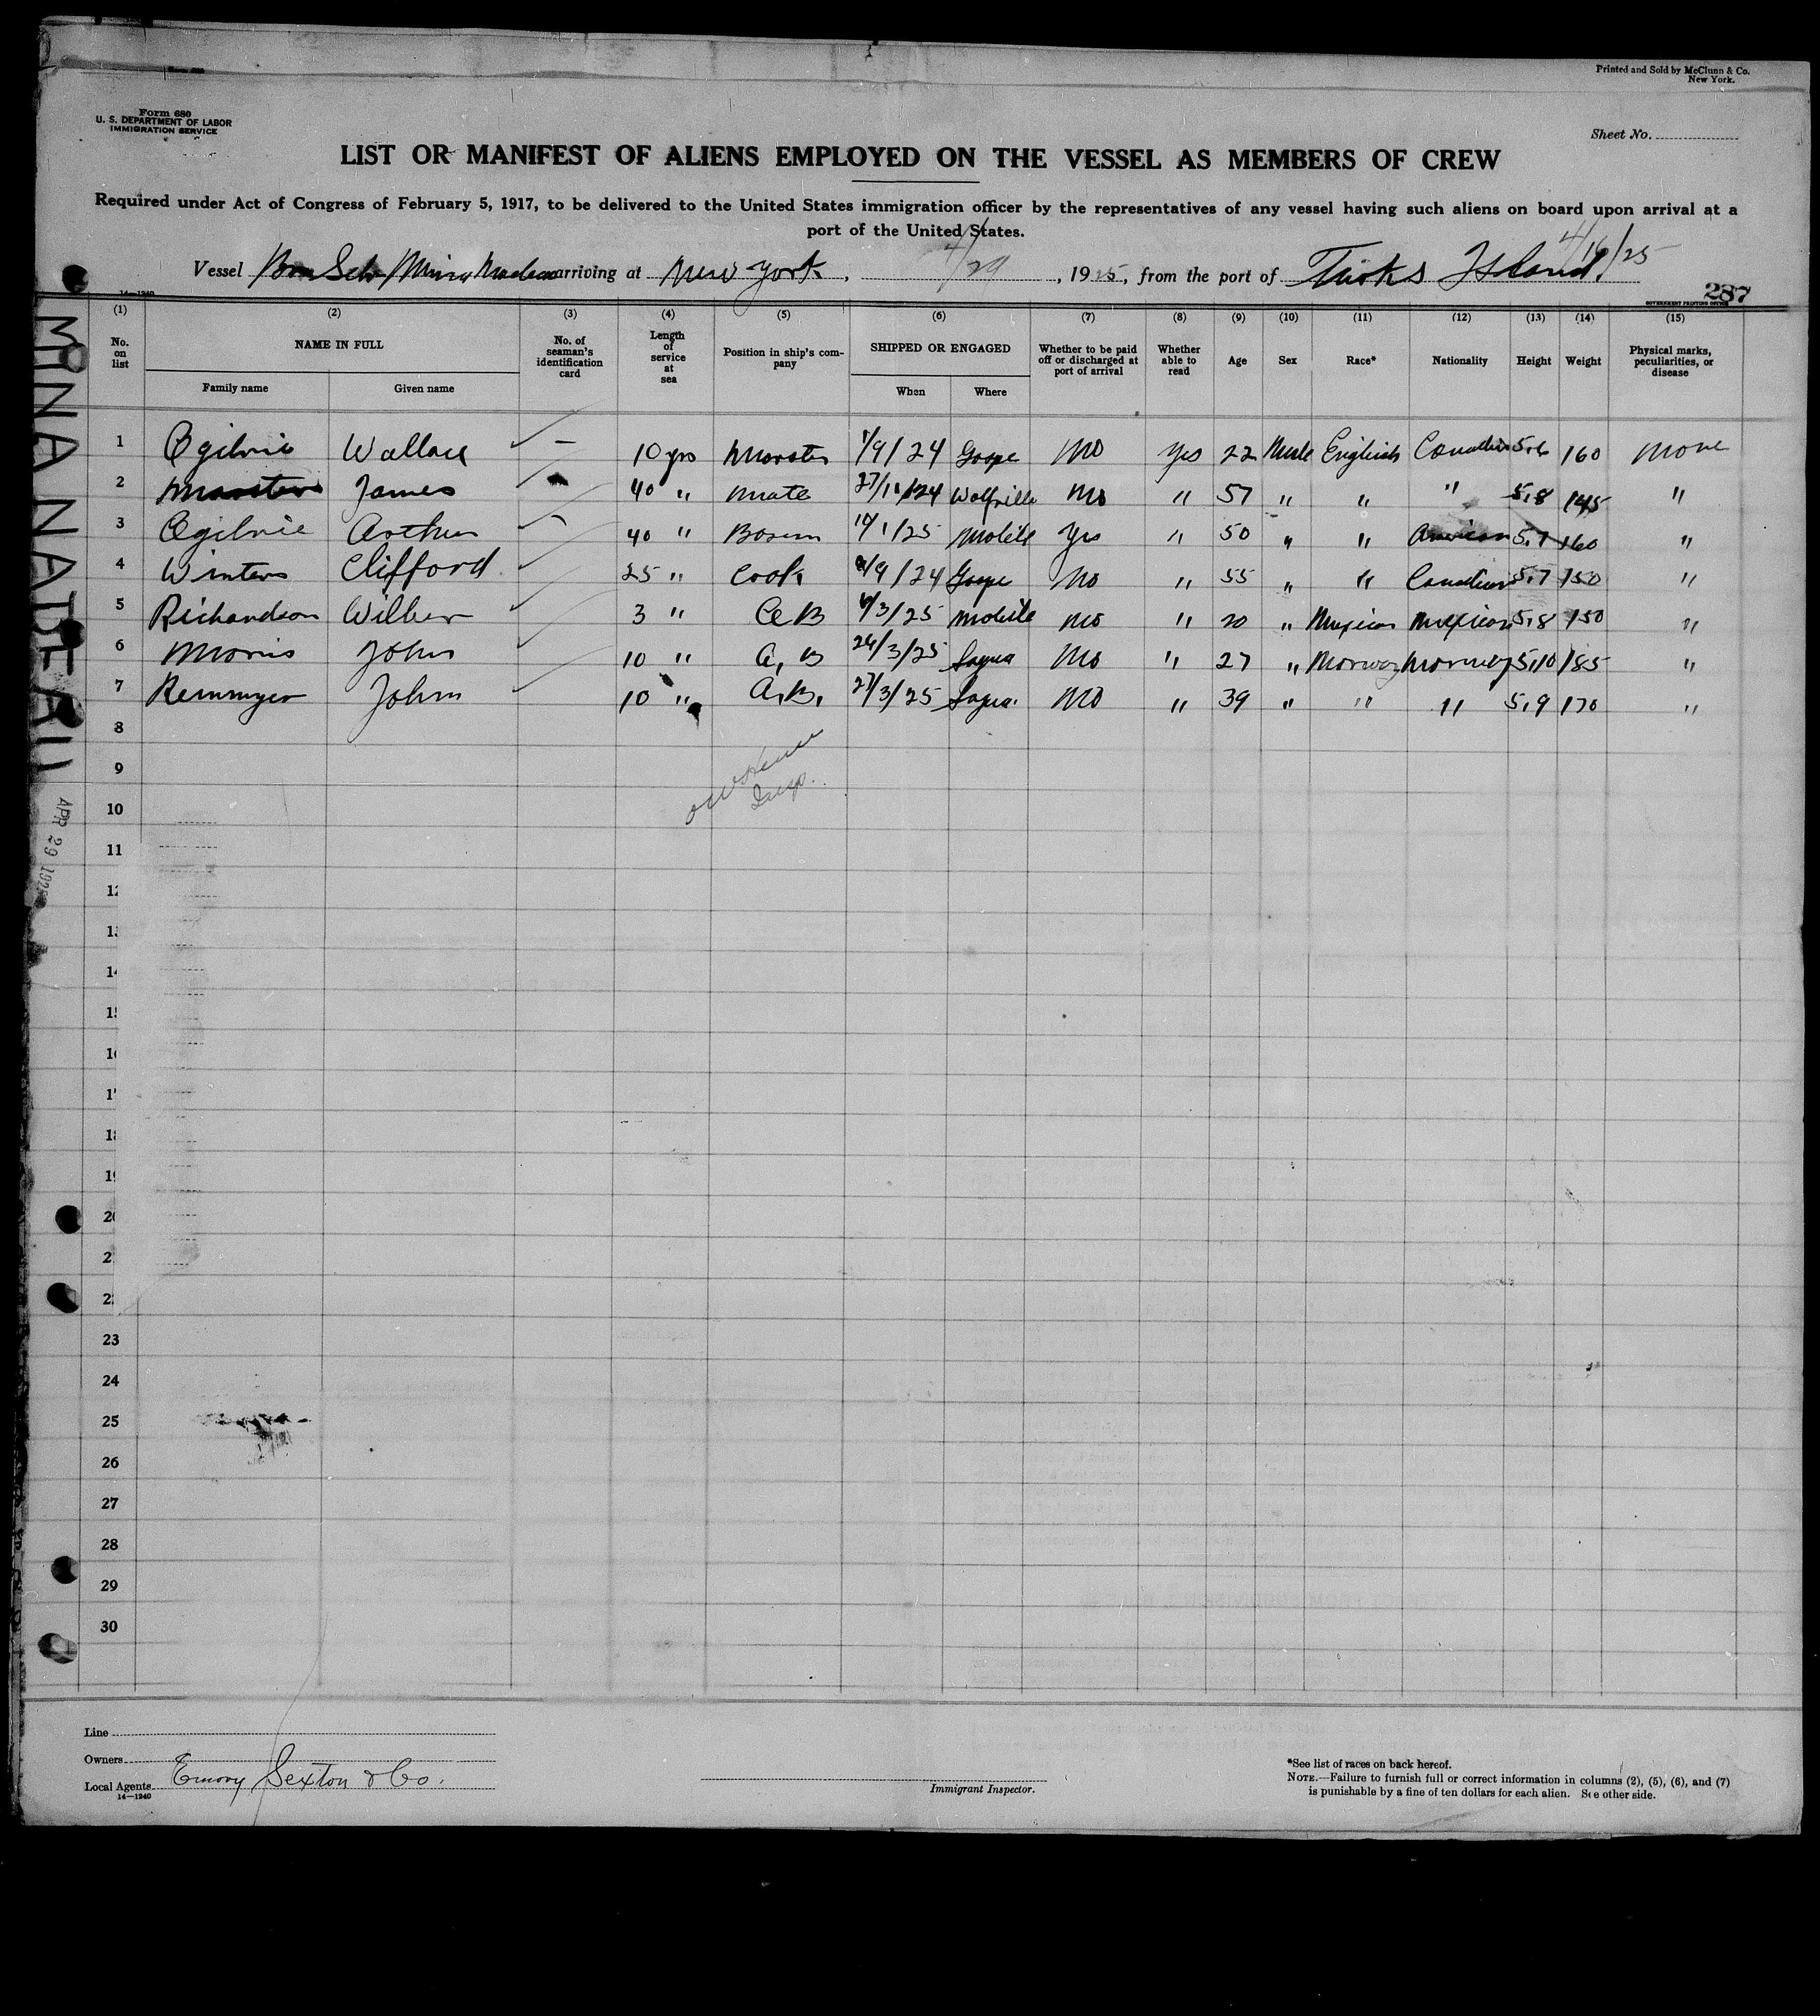 Printed and Sold by McClunn & Co.
New York.
Form 680
U. S. DEPARTMENT OF LABOR
IMMIGRATION SERVICE
Sheet No.
LIST OR MANIFEST OF ALIENS EMPLOYED ON THE VESSEL AS MEMBERS OF CREW
Required under Act of Congress of February 5, 1917, to be delivered to the United States immigration officer by the representatives of any vessel having such aliens on board upon arrival at a
port of the United States.
4/16/25
Vessel arriving at New York, 4/29, 1925, from the port of Turks Island.
14—1240
287
GOVERNMENT PRINTING OFFICE
(1) (2) (3) (4) (5) (6) (7) (8) (9) (10) (11) (12) (13) (14) (15)
No. on list NAME IN FULL No. of seaman's identification card Length of service at sea Position in ship's company SHIPPED OR ENGAGED Whether to be paid off or discharged at port of arrival Whether able to read Age Sex Race* Nationality Height Weight Physical marks, peculiarities, or disease
Family name Given name When Where
1 Ogilvie Wallace — 10 yrs Master 1/9/24 No Yes 22 Male English Canadian 5.6 160 None
2 Masters James 40 " Mate Wolfville No " 57 " " " 5.8 145 "
3 Ogilvie Arthur 40 " Bosun 1/25 Mobile Yes " 50 " " American 5.7 160 "
4 Winters Clifford 25 " Cook 9/24 No " 55 " " Canadian 5.7 150 "
5 Richardson Wilber 3 " AB 3/25 Mobile No " 20 " Mexican Mexican 5.8 150 "
6 Morris John 10 " A, B 24/3/25 Sagua No " 27 " Norway Norway 5.10 185 "
7 Remmyer John 10 " A.B. 27/3/25 Sagua. No " 39 " " " 5.9 170 "
8
Insp.
9
10
11
12
13
14
15
16
17
18
19
20
21
22
23
24
25
26
27
28
29
30
MINA NADEAU
APR 29 192
Line
Owners
Local Agents Emory Sexton & Co.
14—1240
Immigrant Inspector.
*See list of races on back hereof.
NOTE.—Failure to furnish full or correct information in columns (2), (5), (6), and (7)
is punishable by a fine of ten dollars for each alien. See other side.